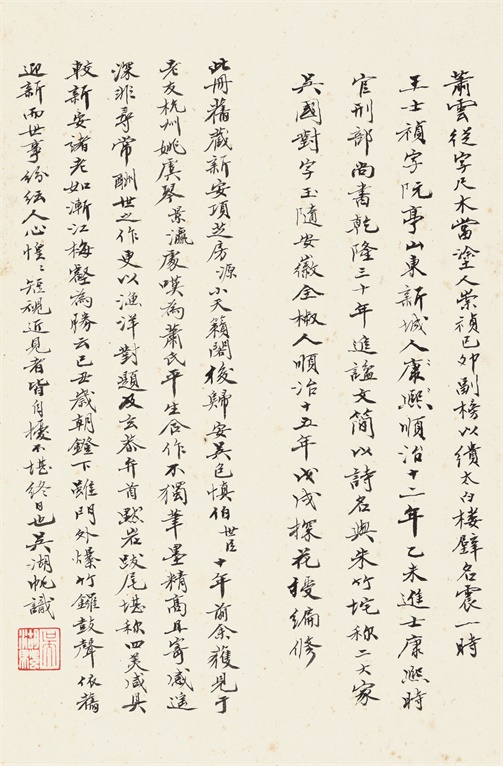 蕭雲從字尺木當塗人崇禎己卯副榜以繢太白樓壁名震一時
王士禎字阮亭山東新城人康熙順治十二年乙未進士康熙時
官刑部尚書乾隆三十年進謚文簡以詩名與朱竹垞称二大家
吳國對字玉隨安徽全椒人順治十五年戊戌探花授編修
此冊舊藏新安項芝房源小天籟閣後歸安吳邑慎伯世臣十年前余獲見于
老友杭州姚虞琴景瀛處嘆為蕭氏平生合作不獨筆墨精高且寄感遥
深非尋常酬世之作更以漁洋對題及玄恭弁首黙岩跋尾堪称四美咸具
較新安諸老如漸江梅壑為勝云己丑歲朝鐙下雖門外爆竹鑼鼓聲依舊
迎新而世事紛紜人心惶〻短視近見者皆自擾不堪終日也吳湖帆識